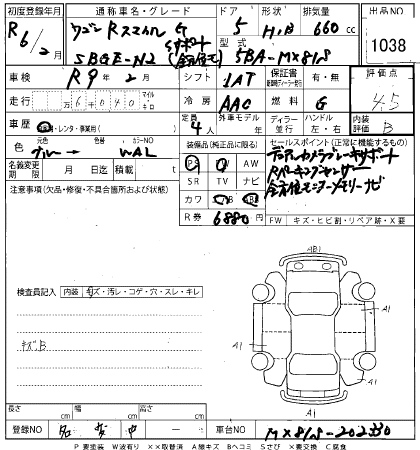 初度登録年月 通称車名・グレード ドア 形状 排気量 出品NO
R6/2月 ワゴンRスマイル G 5 H/B 660cc
1038
5BGE-N2 Sサポート 型式 5BA-MX81S
車検 R9年2月 シフト IAT 保証書 有・無 評価点
走行 万 6,040 マイル キロ 冷房 AAC 燃料 G 4.5
車歴 レンタ・事業用( ) 定員 4人 外車モデル 年 ディーラー 並行 ハンドル 左・右 内装評価 B
元色 色替 カラーNO WAL
装備品(純正品に限る) セールスポイント(正常に機能するもの)
名義変更期限 月 日迄 積載 t
PS PW AW
デュアルカメラブレーキサポート
SR TV ナビ
Rパーキングセンサー
注意事項(欠品・修復・不具合箇所および状態)
カワ
R券 6880円
FW キズ・ヒビ割・リペア跡・X要
検査員記入 内装 キズ・汚レ・コゲ・穴・スレ・キレ
キズB
AB1
A1
A1
A1
A1
長さ cm 幅 cm 高さ cm
登録NO 車台NO MX81S-202330
P 要塗装 W波有り ××取替済 A線キズ Bヘコミ Sさび ×要交換 C腐食